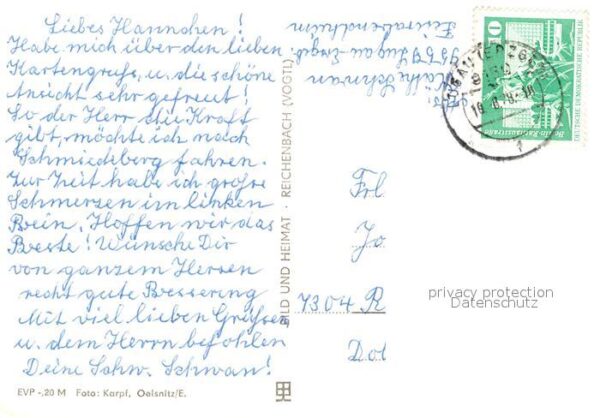 Liebes Hannchen!
Habe mich über den lieben
Kartengruß, u. die schöne
Ansicht sehr gefreut!
So der Herr die Kraft
gibt, möchte ich nach
Schmiedeberg fahren.
Zur Zeit habe ich große
Schmerzen im linken
Bein. Hoffen wir das
Beste! Wünsche Dir
von ganzem Herzen
recht gute Besserung
Mit viel lieben Grüßen
u. dem Herrn befohlen
Deine Schw. Schwan!
EVP -,20 M Foto: Karpf, Oelsnitz/E.
BILD UND HEIMAT REICHENBACH (VOGTL)
Käthe Schwan
9159 Lugau-Erzgeb.
Feierabendheim
10
DEUTSCHE DEMOKRATISCHE REPUBLIK
Berlin
Frl.
Jo
7304 R
Dol
privacy protection
Datenschutz